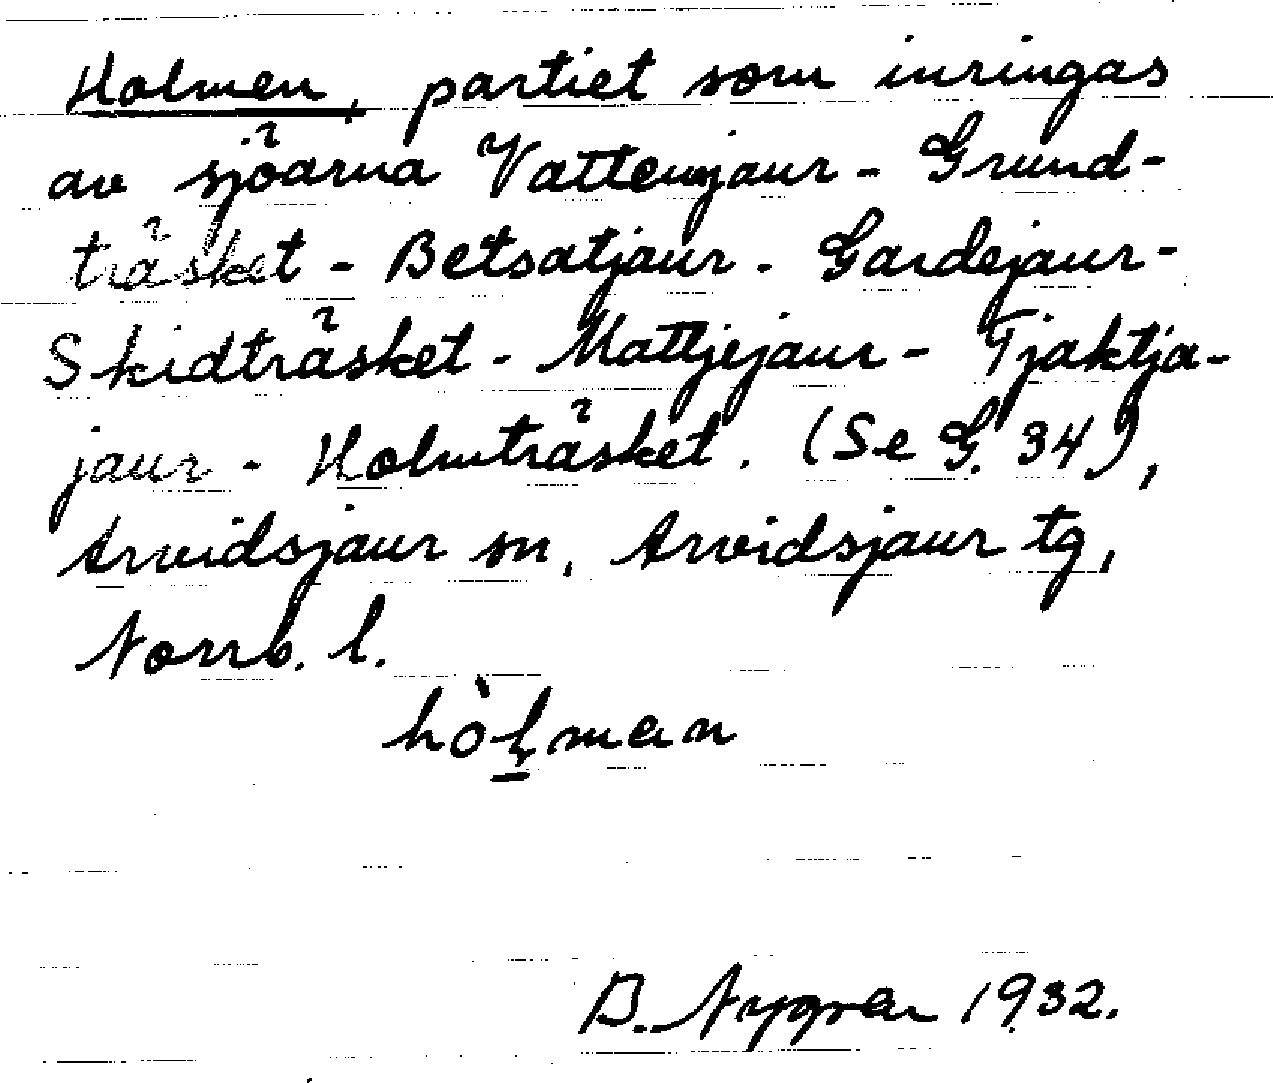 Holmen, partiet som inringas
av sjöarna Vattenjaur - Grund-
träsket - Betsatjaur - Gardejaur-
Skidträsket - Mattjejaur - Tjaktja-
jaur - Holmträsket. (Se G. 34),
Arvidsjaur sn, Arvidsjaur tg,
Norrb. l.
hòl̠man
B. Nygren 1932.